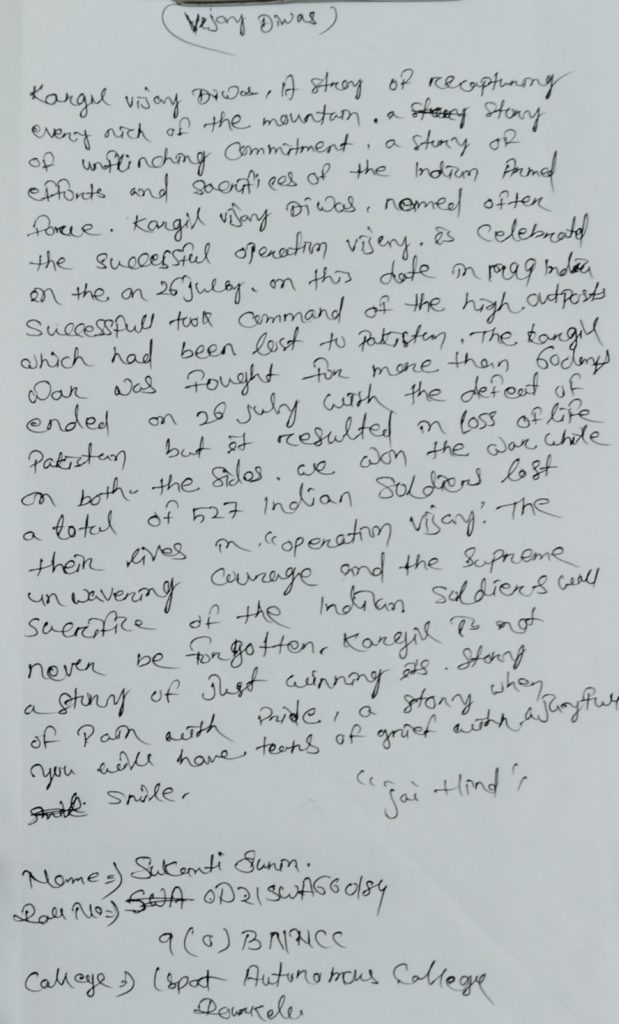 (Vijay Diwas)
Kargil vijay Diwas, A story of recapturing
every nich of the mountain. a story
of unflinching Commitment, a story of
efforts and sacrifices of the Indian Armed
force. Kargil vijay Diwas, named often
the successful operation vijay. is Celebrated
on the, on 26 july. on this date in 1999 India
Successfull took Command of the high outposts
which had been lost to Pakistan. The kargil
war was fought for more than 60 days
ended on 26 july with the defeat of
Pakistan but it resulted in loss of life
on both the sides. we won the war while
a total of 527 Indian Soldiers lost
their lives in "operation vijay". The
unwavering Courage and the Supreme
Sacrifice of the Indian Soldiers will
never be forgotten. Kargil is not
a story of Just winning its. story
of Pain with Pride, a story when
you will have tears of grief with a
smile.
"Jai Hind"
Name=) Sukanti
Roll No=) OD21SWA660184
9(O) BN NCC
College=) Ispat Autonomous College
Rourkela